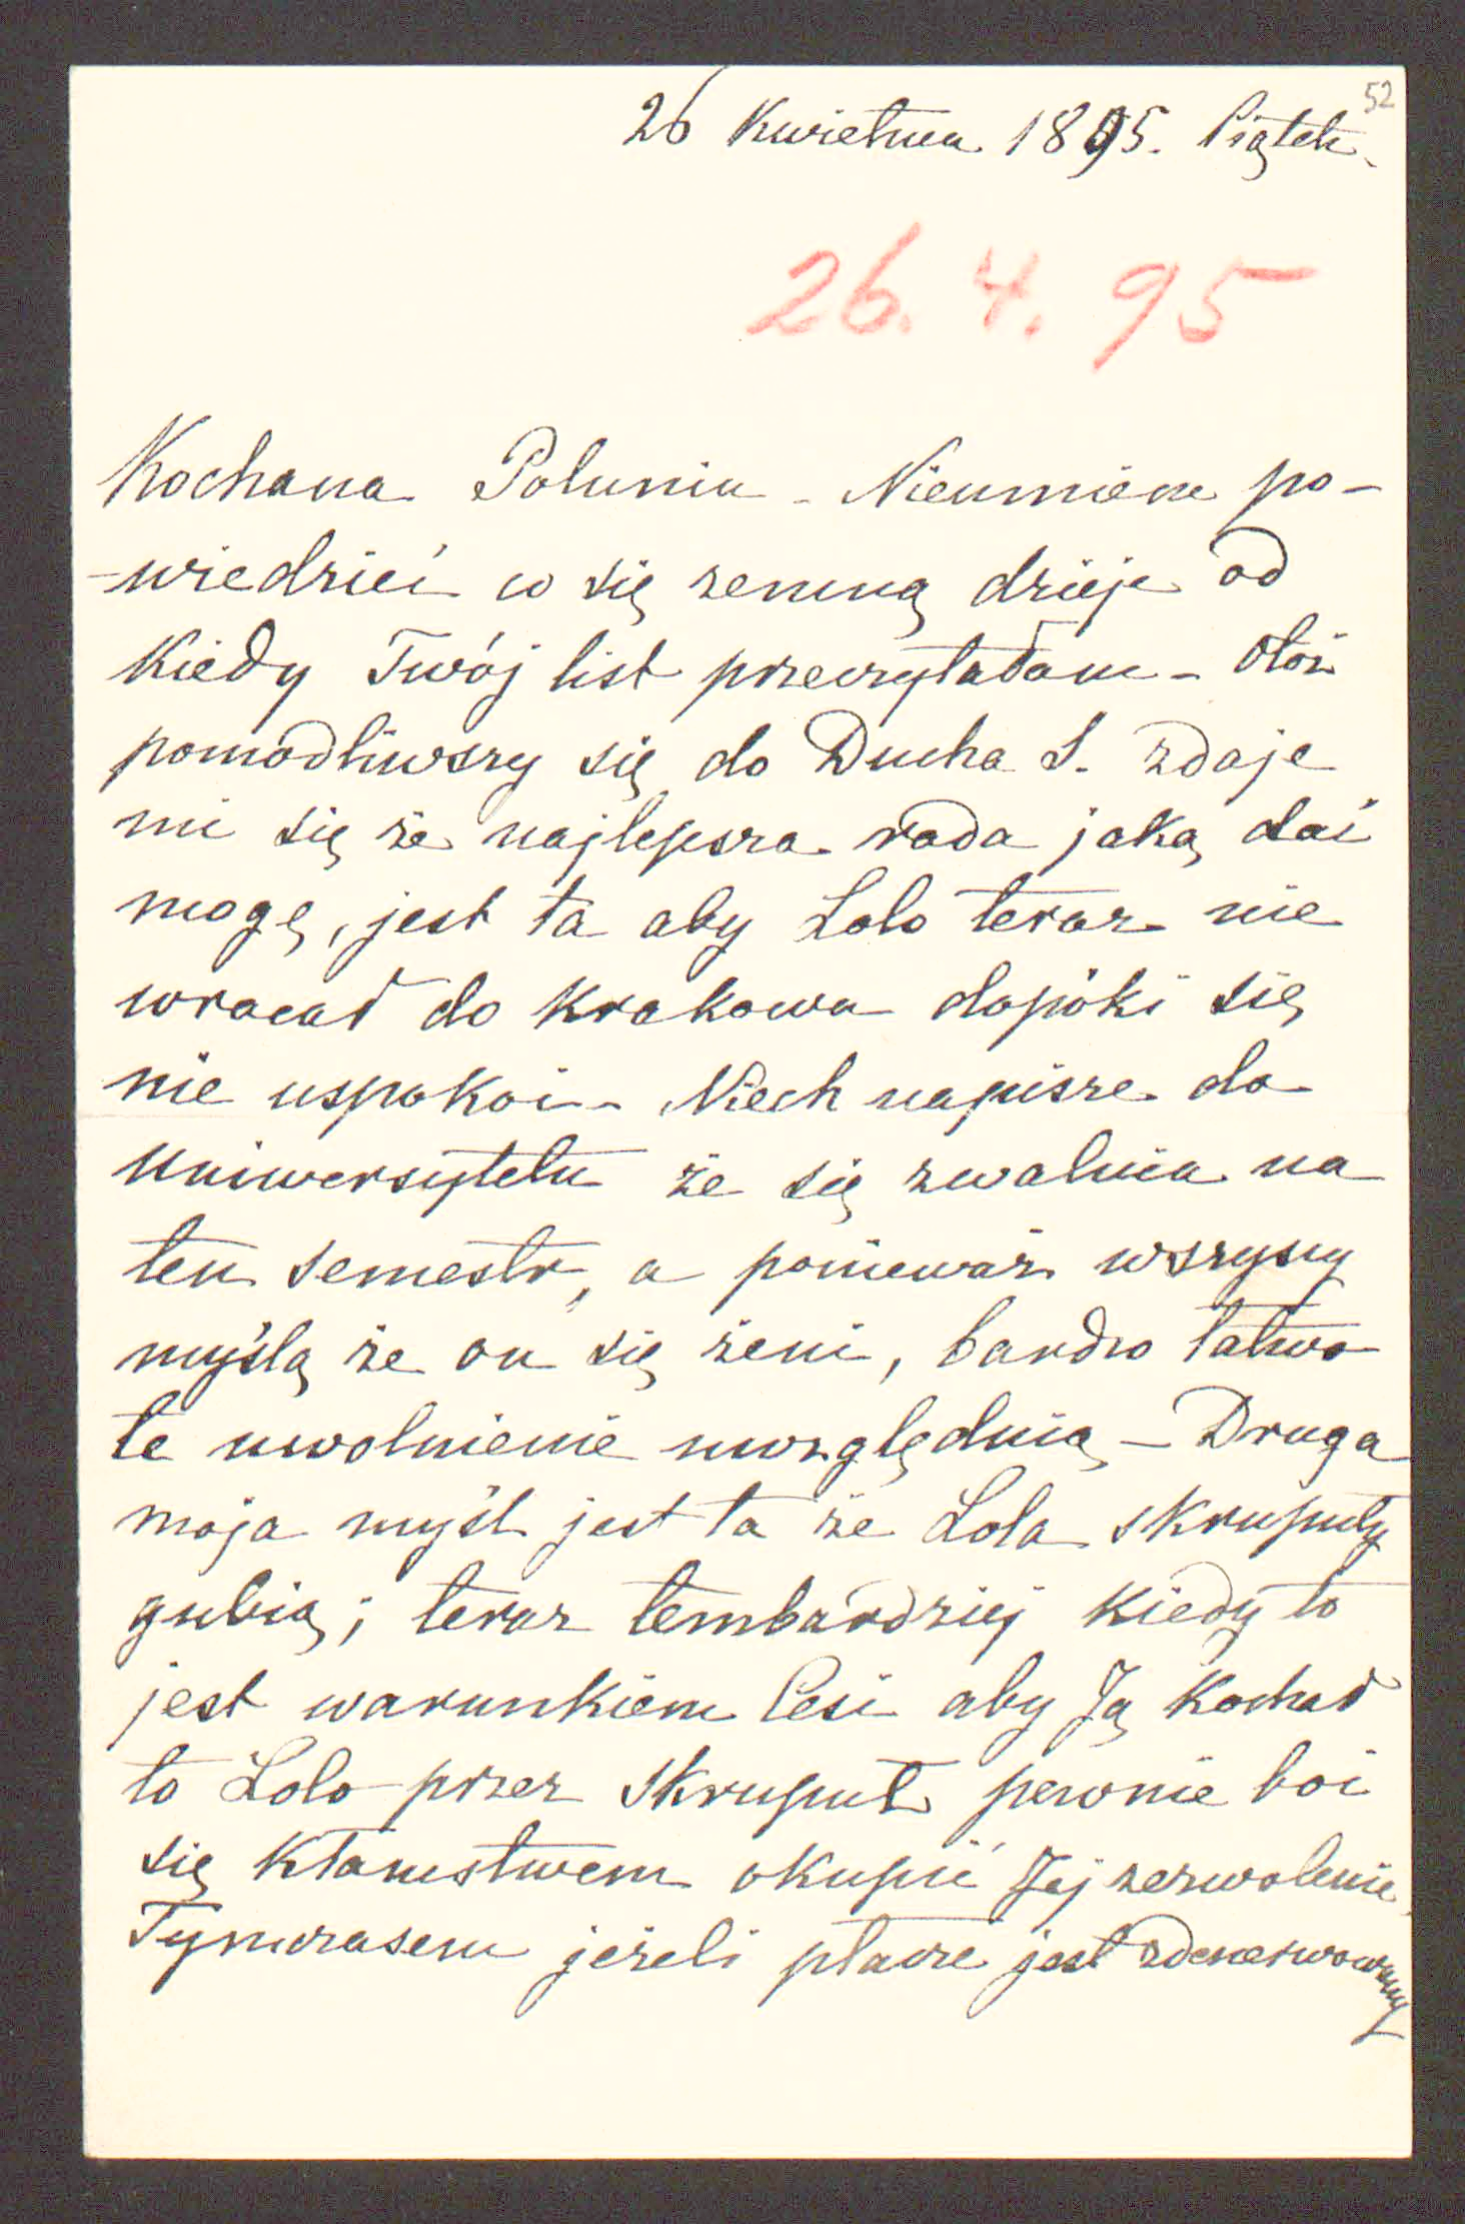 52
26 Kwietnia 1895. Piątek.
26. 4. 95
Kochana Poluniu - Nieumiem po-
-wiedzieć co się zemną dzieje od
kiedy Twój list przeczytałam - Otóż
pomodliwszy się do Ducha S. zdaje
mi się że najlepsza rada jaką dać
mogę, jest ta aby Lolo teraz nie
wracał do Krakowa dopóki się
nie uspokoi - Niech napisze do
Uniwersytetu że się zwalnia na
ten semestr, a ponieważ wszyscy
myślą że on się żeni, bardzo łatwo
te uwolnienie uwzględnią - Druga
moja myśl jest ta że Lola skrupuły
gubią; teraz tembardziej kiedy to
jest warunkiem Cesi aby Ją kochał
to Lolo przez skrupuł pewnie boi
się kłamstwem okupić Jej zezwolenie,
Tymczasem jeżeli płacze jest zdenerwowany